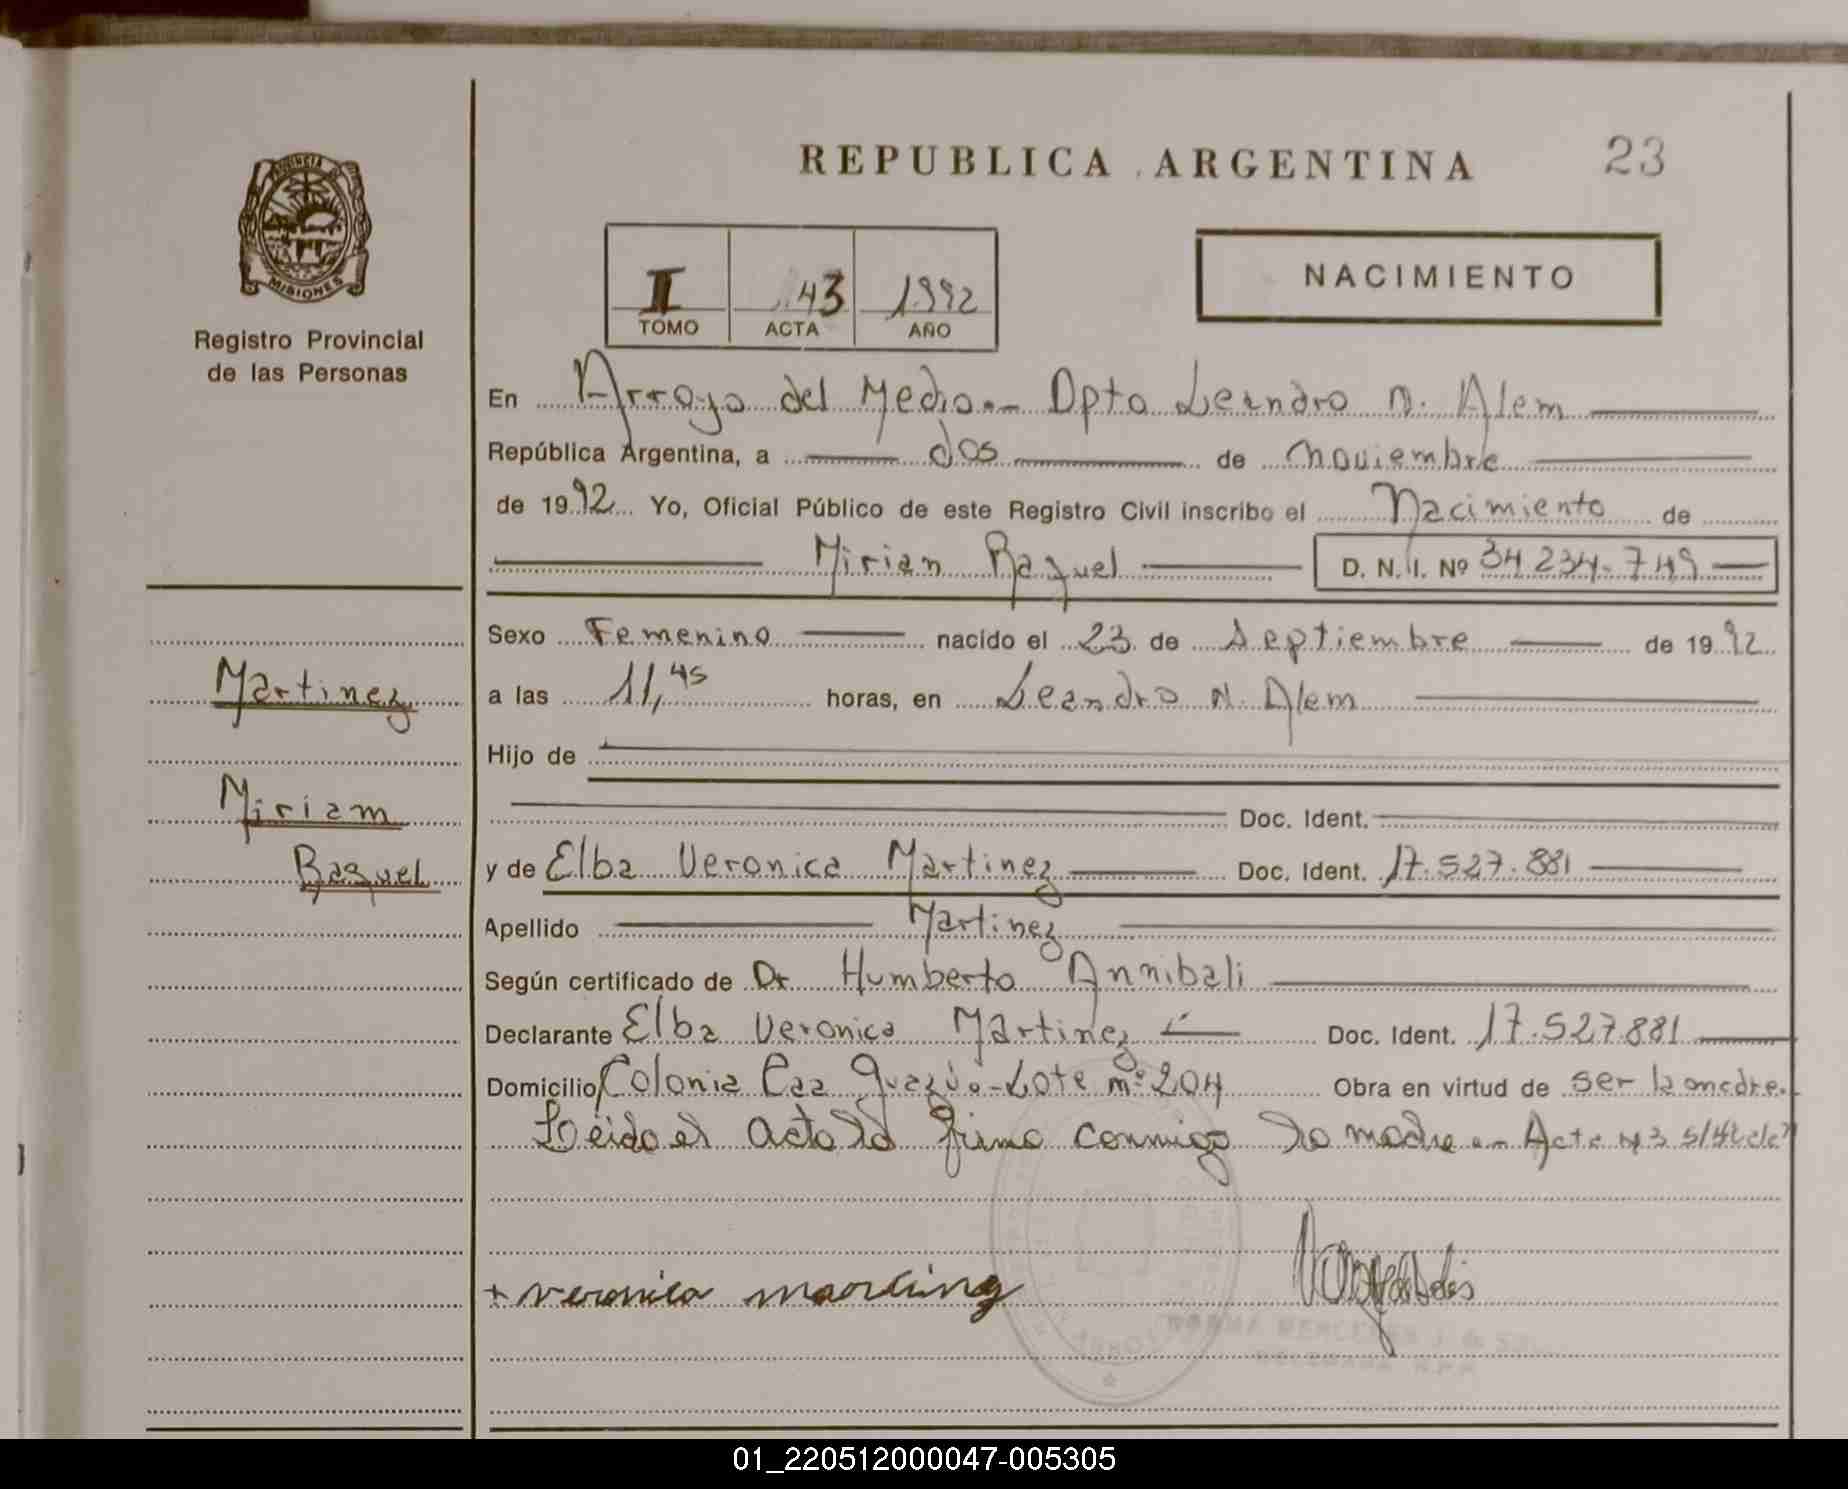 REPUBLICA ARGENTINA
23
PROVINCIA DE
MISIONES
Registro Provincial
de las Personas
I 43 1992
TOMO ACTA AÑO
NACIMIENTO
En Arroyo del Medio.- Dpto Leandro N. Alem
República Argentina, a dos de noviembre
de 1992 Yo, Oficial Público de este Registro Civil inscribo el Nacimiento de
Mirian Raquel D. N. I. Nº 34 234.749
Sexo Femenino nacido el 23 de Septiembre de 1992
Martinez
a las 11,45 horas, en Leandro N. Alem
Hijo de
Miriam
Doc. Ident.
Raquel
y de Elba Veronica Martinez Doc. Ident. 17.527.881
Apellido Martinez
Según certificado de Dr Humberto Annibali
Declarante Elba Veronica Martinez Doc. Ident. 17.527.881
Domicilio Colonia Caa Guazú-Lote nº 204 Obra en virtud de ser la madre.
Leida el acta la firma conmigo la madre.- Acta
+ veronica
NORMA MERCEDES
DELEGADA R.P.P.
01_220512000047-005305